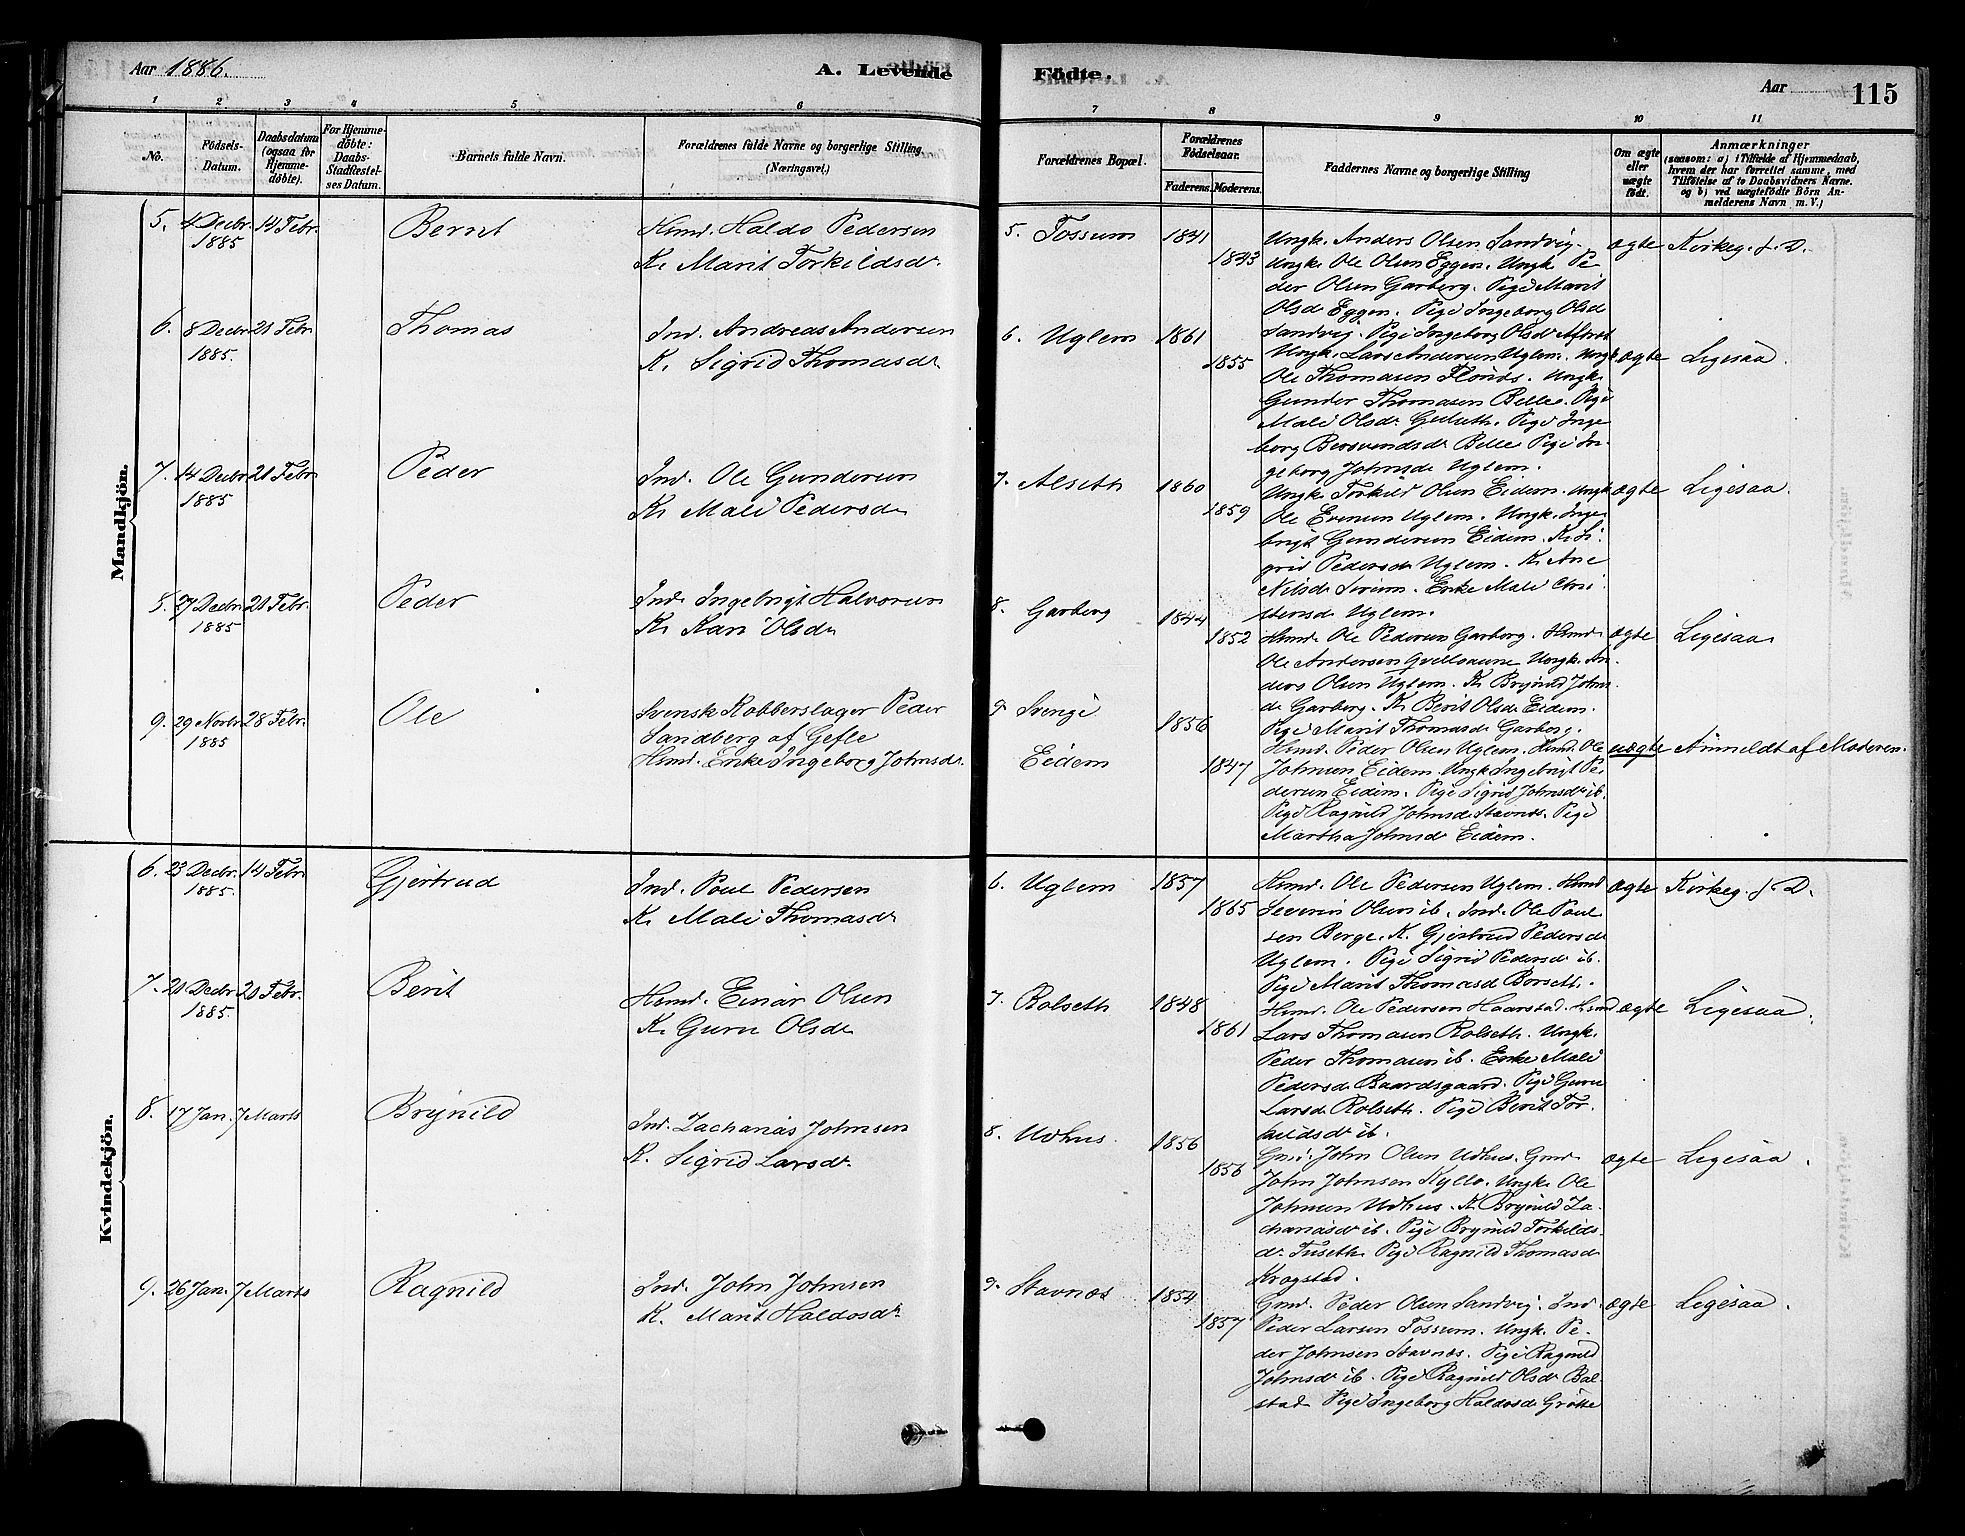 Aar 1886.
A. Levende Födte.
Aar 115
1 2 3 4 5 6 7 8 9 10 11
No.
Födsels-Datum.
Daabsdatum (ogsaa for Hjemme-döbte).
For Hjemme-döbte: Daabs-Stadfestelses Datum.
Barnets fulde Navn.
Forældrenes fulde Navne og borgerlige Stilling. (Næringsvei.)
Forældrenes Bopæl.
Forældrenes Födselsaar.
Faderens. Moderens.
Faddernes Navne og borgerlige Stilling
Om ægte eller uægte födt.
Anmærkninger
(saasom: a) i Tilfælde af Hjemmedaab,
hvem der har forrettet samme, med
Tilföielse af to Daabsvidners Navne.
og b) ved uægtefödte Börn An-
melderens Navn m. V.)
Mandkjön.
5. 4 Decbr. 1885 14 Febr. Bernt
Hsmd. Haldo Pedersen
K. Marit Torkildsdr.
5. Tossum 1841 1843
Ungk. Anders Olsen Sandvig.
Ungk. Ole Olsen Eggen. Ungk. Pe-
der Olsen Garberg. Pige Marit
Olsd. Eggen. Pige Ingeborg Olsd.
Sandvig. Pige Ingeborg Olsdr.
ægte Kirkeg. f. D.
6. 8 Decbr. 1885. 21 Febr. Thomas
Ind. Andreas Andersen
K. Sigrid Thomasdr.
6. Uglem 1861 1855
Ungk. Lars Andersen Uglem. Ungk.
Ole Thomasen Flönæs. Ungk.
Gunder Thomasen Belle. Pige
Mali Olsdr. Pige Inge-
borg Bersvendsdr. Belle Pige In-
geborg Johnsdr. Uglem.
ægte Ligesaa.
7. 14 Decbr. 1885 21 Febr. Peder
Ind. Ole Gundersen
K. Mali Pedersdr.
7. Alseth 1860 1859
Ungk. Torkild Olsen Eidem. Ungk.
Ole Evensen Uglem. Ungk. Inge-
brigt Gundersen Eidem. K. Si-
grid Pedersdr. Uglem. K. Ane
Nilsdr. Enke Mali Chri-
stensdr. Uglem.
ægte Ligesaa.
8. 27 Decbr. 1885 21 Febr. Peder
Ind. Ingebrigt Halvorsen
K. Kari Olsdr.
8. Garberg 1844 1852
Hsmd. Ole Pedersen Garberg. Hsmd.
Ole Andersen Ungk. An-
ders Olsen Uglem. K. Brynild Johns-
dr. Garberg. K. Berit Olsdr. Eidem.
Pige Marit Thomasdr. Garberg.
ægte Ligesaa.
9. 29 Novbr. 1885 28 Febr. Ole
Svensk Kobberslager Peder
Sandberg af Gefle
Hsmd. Enke Ingeborg Johnsdr.
9. Sverige
Eidem 1856 1847
Hsmd. Peder Olsen Uglem. Hsmd. Ole
Johnsen Eidem. Ungk. Ingebrigt Pe-
dersen Eidem. Pige Sigrid Johnsdr. ib.
Pige Ragnild Johnsdr. Stavnæs. Pige
Martha Johnsdr. Eidem.
uægte Anmeldt af Moderen.
Kvindekjön.
6. 23 Decbr. 1885. 14 Febr. Gjertrud
Ind. Poul Pedersen
K. Mali Thomasdr.
6. Uglem 1857 1865
Hsmd. Ole Pedersen Uglem. Hsmd.
Severin Olsen ib. Ind. Ole Poul-
sen Berge. K. Gjertrud Pedersdr.
Uglem. Pige Sigrid Pedersdr. ib.
Pige Marit Thomasdr. Borseth.
ægte Kirkeg. f. D.
7. 20 Decbr. 1885. 20 Febr. Berit
Hsmd. Einar Olsen
K. Guru Olsdr.
7. Rolseth 1848 1861
Hsmd. Ole Pedersen Haarstad. Hsmd.
Lars Thomasen Rolseth. Ungk.
Peder Thomasen ib. Enke Mali
Pedersdr. Baardsgaard. Pige Guru
Larsdr. Rolseth. Pige Berit Tor-
keldsdr. ib.
ægte Ligesaa.
8. 17 Jan. 7 Marts Brynild
Ind. Zacharias Johnsen
K. Sigrid Larsdr.
8. Udhus. 1856 1856
Gmd. John Olsen Udhus. Gmd.
John Johnsen Kyllo. Ungk. Ole
Johnsen Udhus. K. Brynild Za-
chariasdr. ib. Pige Brynild Torkilds-
dr. Tuseth. Pige Ragnild Thomasdr.
Krogstad.
ægte Ligesaa.
9. 26 Jan. 7 Marts Ragnild
Ind. John Johnsen
K. Marit Haldosdr.
9. Stavnæs 1854 1857
Gmd. Peder Olsen Sandvig. Ind.
Peder Larsen Tossum. Ungk. Pe-
der Johnsen Stavnæs. Pige Ragnild
Johnsdr. ib. Pige Ragnild Olsdr. Bal-
stad Pige Ingeborg Haldosdr. Grötte
ægte Ligesaa.